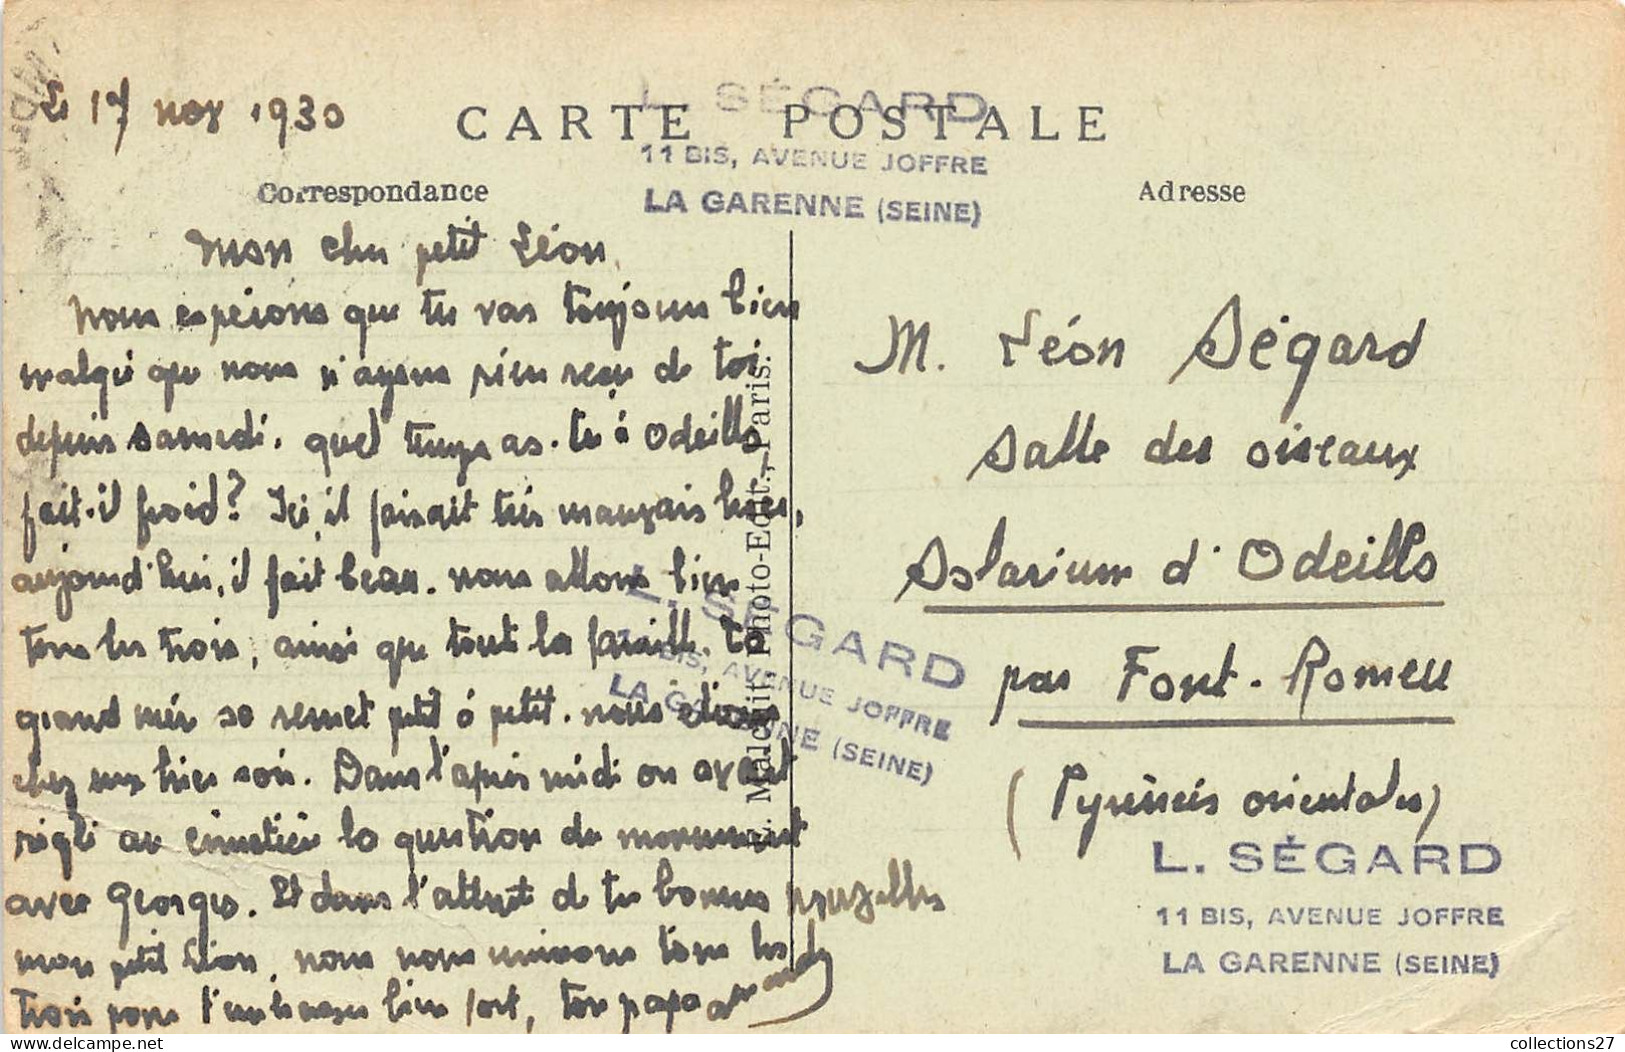 Le 17 nov 1930
CARTE POSTALE
L. SÉGARD
11 BIS, AVENUE JOFFRE
LA GARENNE (SEINE)
Correspondance
Adresse
Mon cher petit Léon,
Nous espérons que tu vas toujours bien
malgré que nous n'ayons rien reçu de toi
depuis samedi. quel temps as-tu à Odeillo
fait-il froid? Ici, il faisait très mauvais hier,
aujourd'hui, il fait beau. nous allons bien
tous les trois, ainsi que toute la famille. ta
grand mère se remet petit à petit. nous étions
chez eux hier soir. Dans l'après midi on avait
réglé au cimetière la question du monument
avec Georges. Et dans l'attente de tes bonnes nouvelles
mon petit Léon, nous nous unissons tous les
trois pour t'embrasser bien fort, ton papa
M. Léon Ségard
Salle des oiseaux
Solarium d'Odeillo
par Font-Romeu
(Pyrénées orientales)
L. SÉGARD
11 BIS, AVENUE JOFFRE
LA GARENNE (SEINE)
L. SÉGARD
BIS, AVENUE JOFFRE
LA GARENNE (SEINE)
Malcuit, Photo-Edit., Paris.
collections27